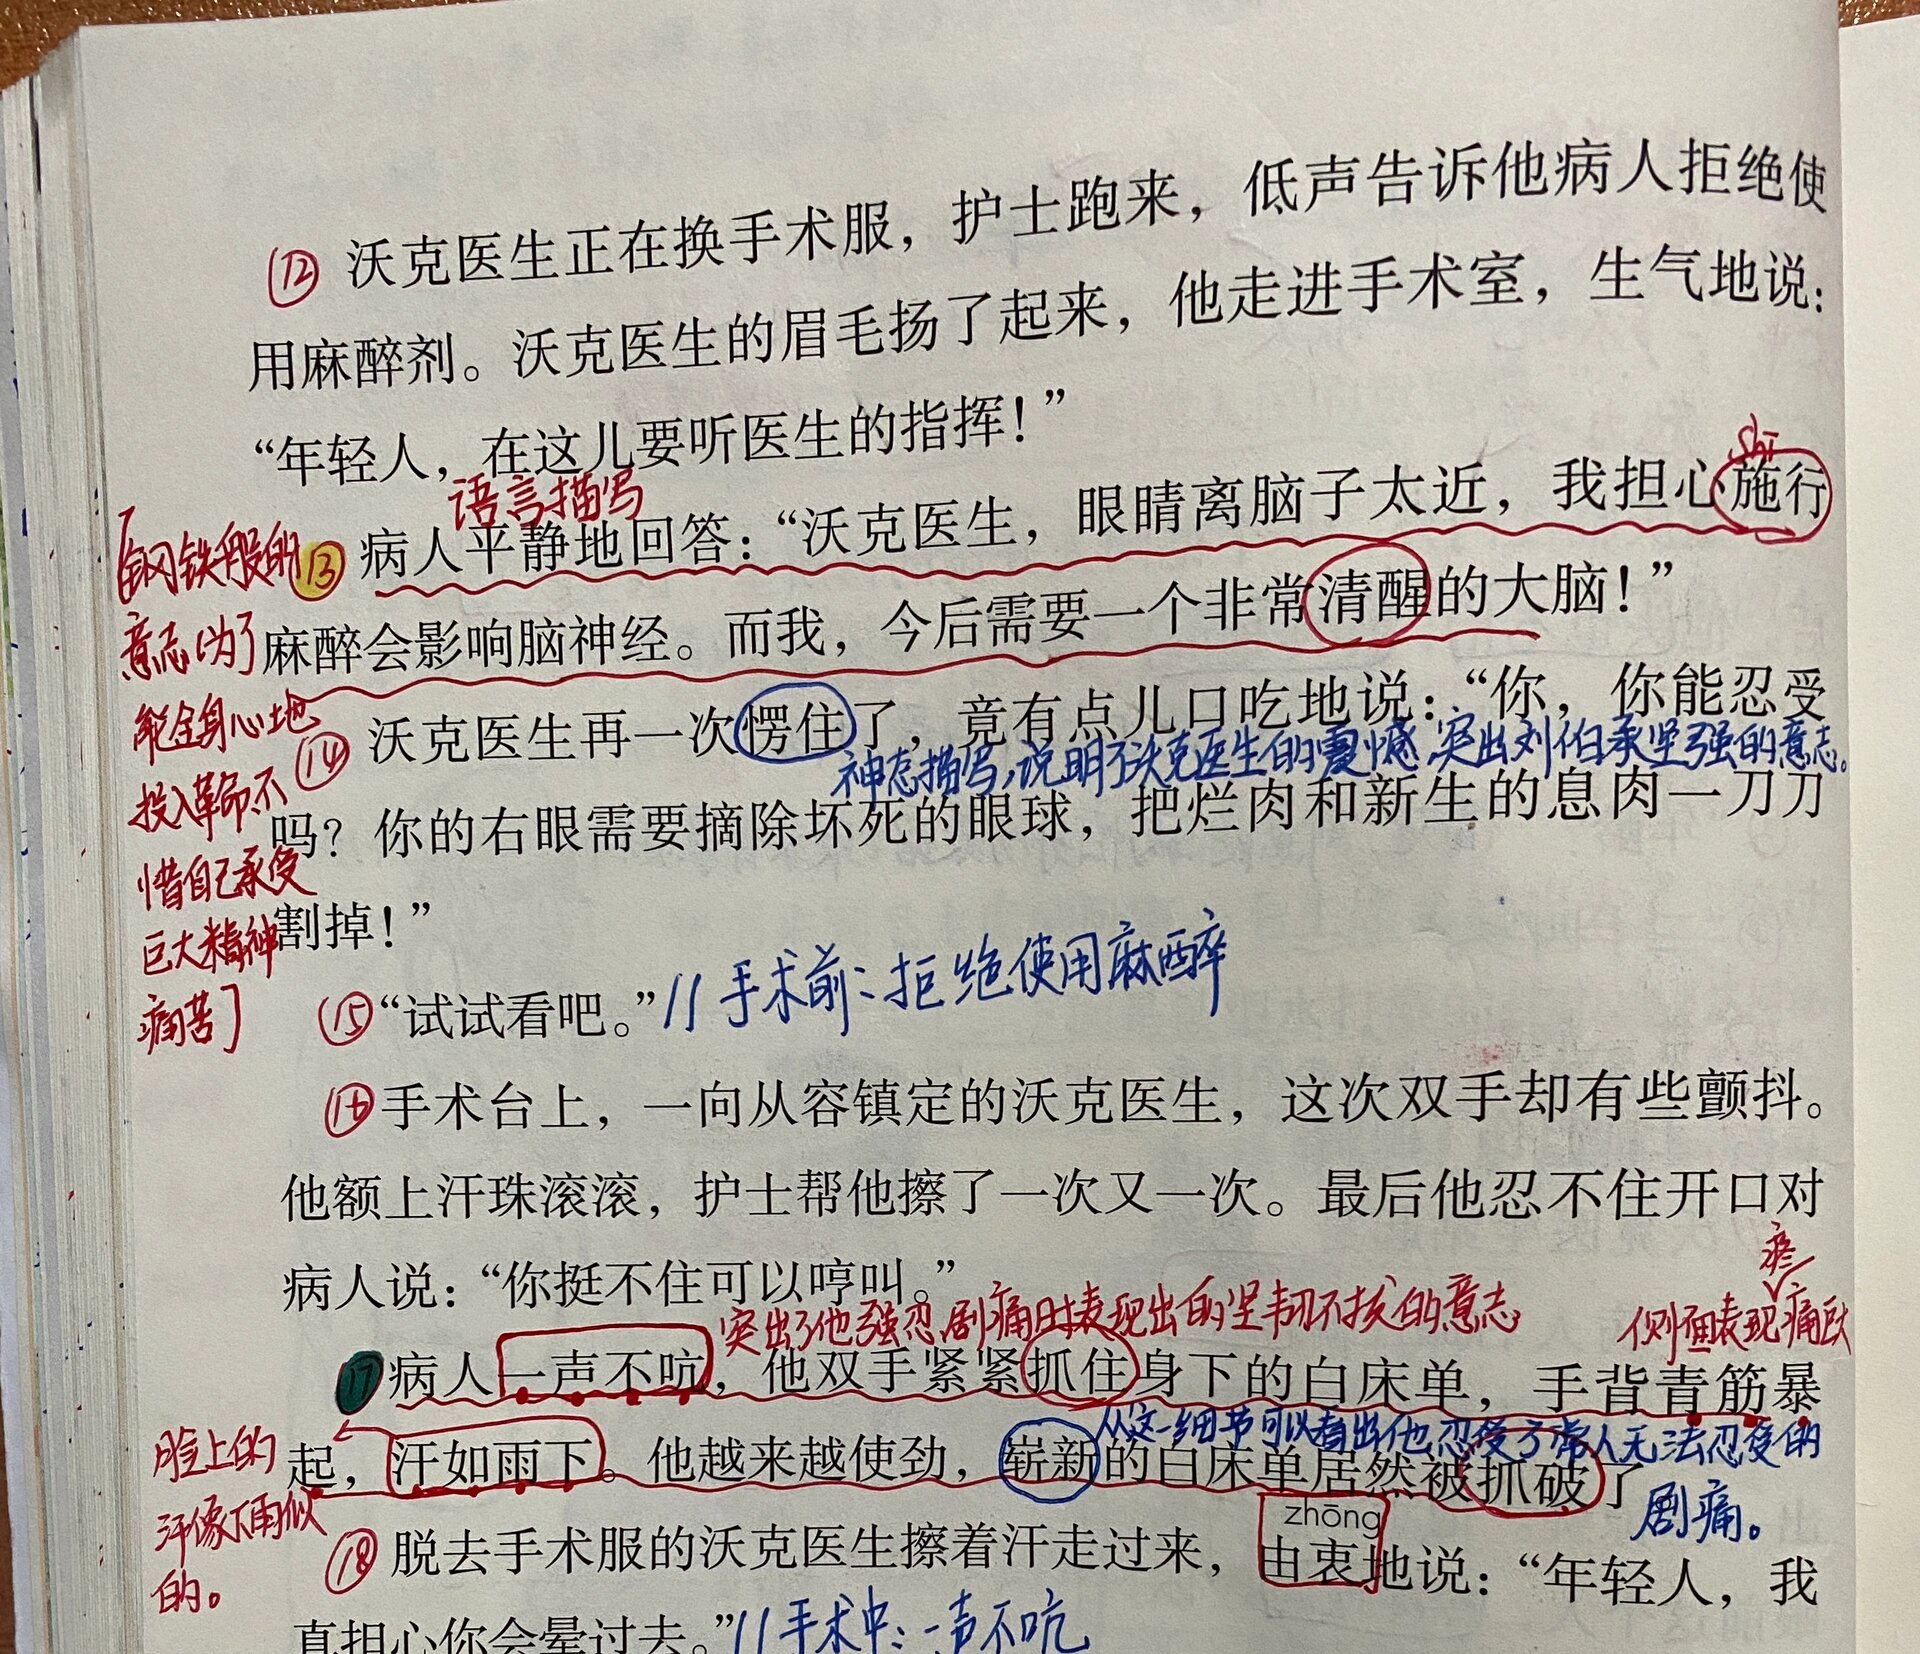 ⑫ 沃克医生正在换手术服，护士跑来，低声告诉他病人拒绝使
用麻醉剂。沃克医生的眉毛扬了起来，他走进手术室，生气地说：
“年轻人，在这儿要听医生的指挥！”
语言描写
shī
⑬ 病人平静地回答：“沃克医生，眼睛离脑子太近，我担心施行
麻醉会影响脑神经。而我，今后需要一个非常清醒的大脑！”
[钢铁般的
意志（为了
能全身心地
投入革命不
惜自己承受
巨大精神
痛苦]
⑭ 沃克医生再一次愣住了，竟有点儿口吃地说：“你，你能忍受
神态描写，说明了沃克医生的震憾，突出刘伯承坚强的意志。
吗？你的右眼需要摘除坏死的眼球，把烂肉和新生的息肉一刀刀
割掉！”
⑮ “试试看吧。” // 手术前：拒绝使用麻醉
⑯ 手术台上，一向从容镇定的沃克医生，这次双手却有些颤抖。
他额上汗珠滚滚，护士帮他擦了一次又一次。最后他忍不住开口对
病人说：“你挺不住可以哼叫。”
突出了他强忍剧痛时表现出的坚韧不拔的意志
疼
侧面表现痛
⑰ 病人一声不吭，他双手紧紧抓住身下的白床单，手背青筋暴
从这一细节可以看出他忍受了常人无法忍受的
剧痛。
起，汗如雨下。他越来越使劲，崭新的白床单居然被抓破了
脸上的
汗像下雨似
的。
zhōng
⑱ 脱去手术服的沃克医生擦着汗走过来，由衷地说：“年轻人，我
真担心你会晕过去。” // 手术中：一声不吭